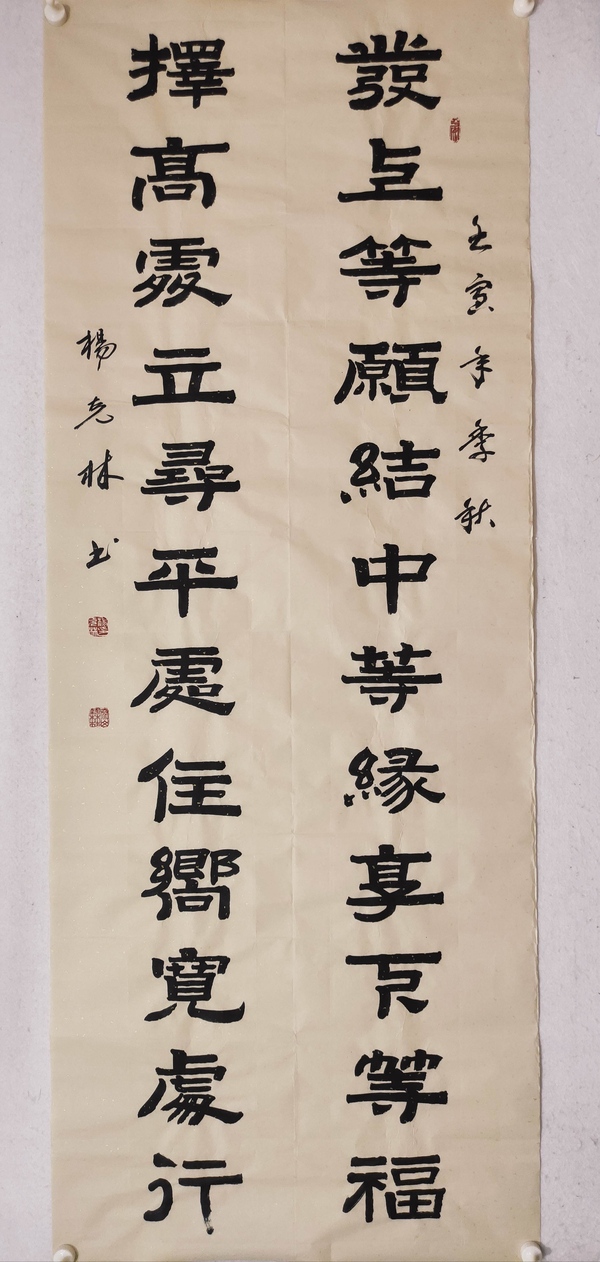 壬寅年季秋
發上等願結中等緣享下等福
擇高處立尋平處住嚮寬處行
楊克林書